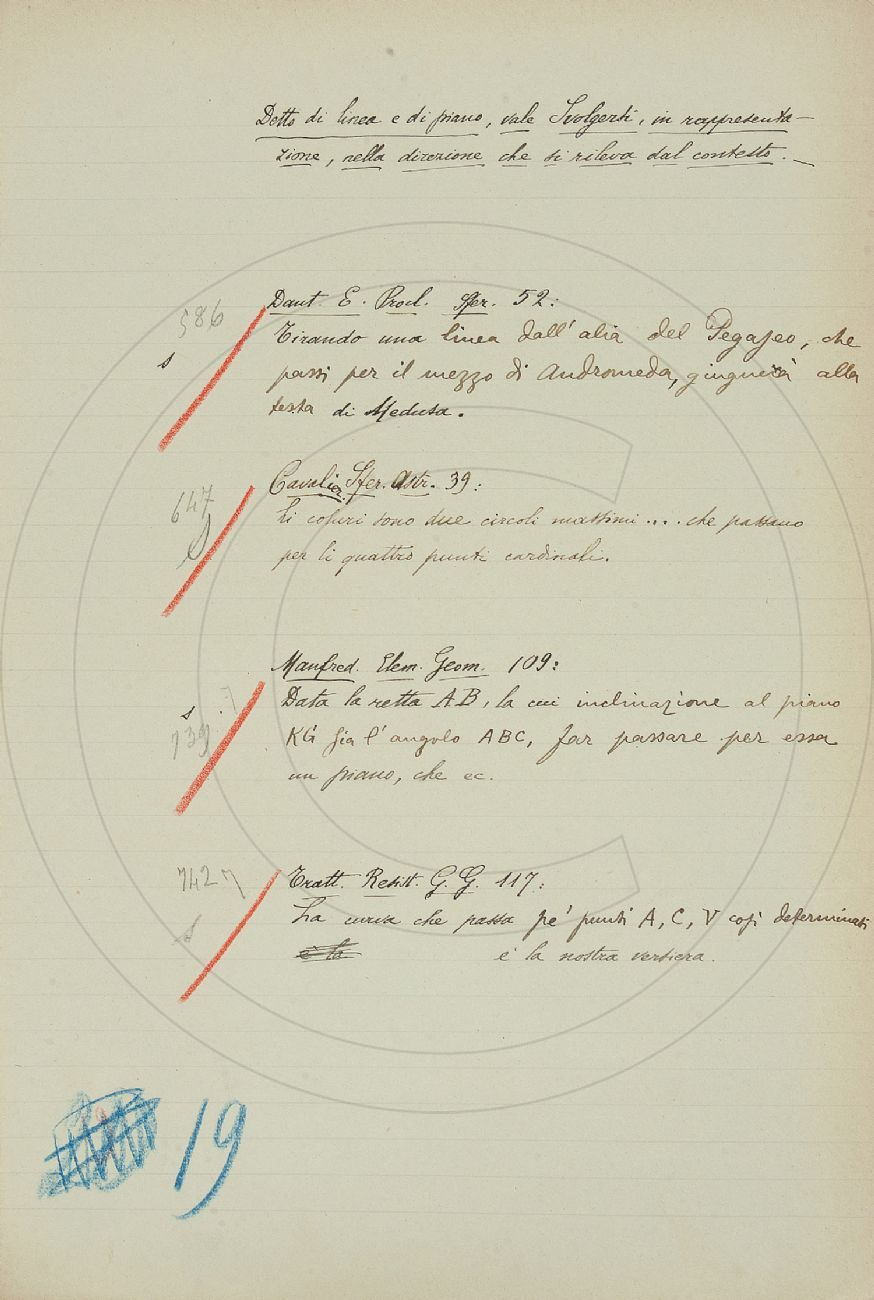 Detto di linea e di piano, vale Svolgersi, in rappresenta-
zione, nella direzione che si rileva dal contesto. _
586
Dant. E. Procl. Sfer. 52:
s
Tirando una linea dall' alia del Pegaseo, che
passi per il mezzo di Andromeda, giugnerà alla
testa di Medusa.
647
Cavalier. Sfer. Astr. 39:
S
li coluri sono due circoli massimi .... che passano
per li quattro punti cardinali.
Manfred. Elem. Geom. 109:
s 7
Data la retta AB, la cui inclinazione al piano
739
KG sia l' angolo ABC, far passare per essa
un piano, che ec.
742 7
Tratt. Resist. G. G. 117:
s
La curva che passa pe' punti A, C, V così determinati
è la è la nostra versiera.
19